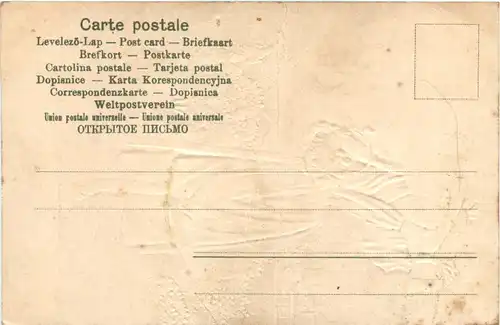 Carte postale
Levelező-Lap — Post card — Briefkaart
Brefkort — Postkarte
Cartolina postale — Tarjeta postal
Dopisnice — Karta Korespondencyjna
Correspondenzkarte — Dopisnica
Weltpostverein
Union postale universelle — Unione postale universale
ОТКРЫТОЕ ПИСЬМО